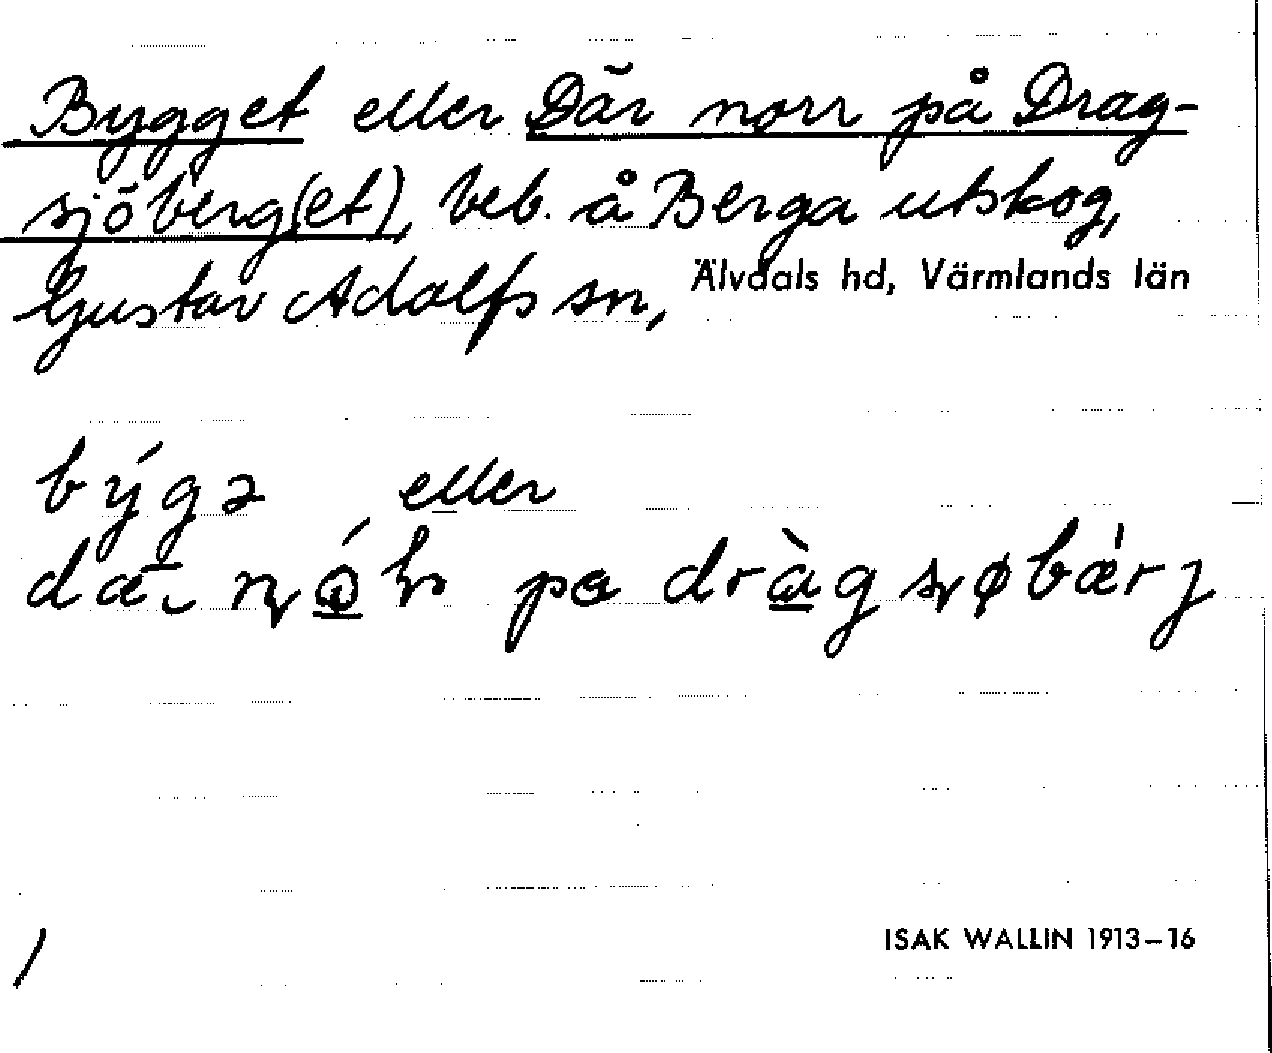 Bygget eller Där norr på Drag-
sjöberg(et), beb. å Berga utskog,
Gustav Adolfs sn, Älvdals hd, Värmlands län
býgə eller
pa
ISAK WALLIN 1913–16